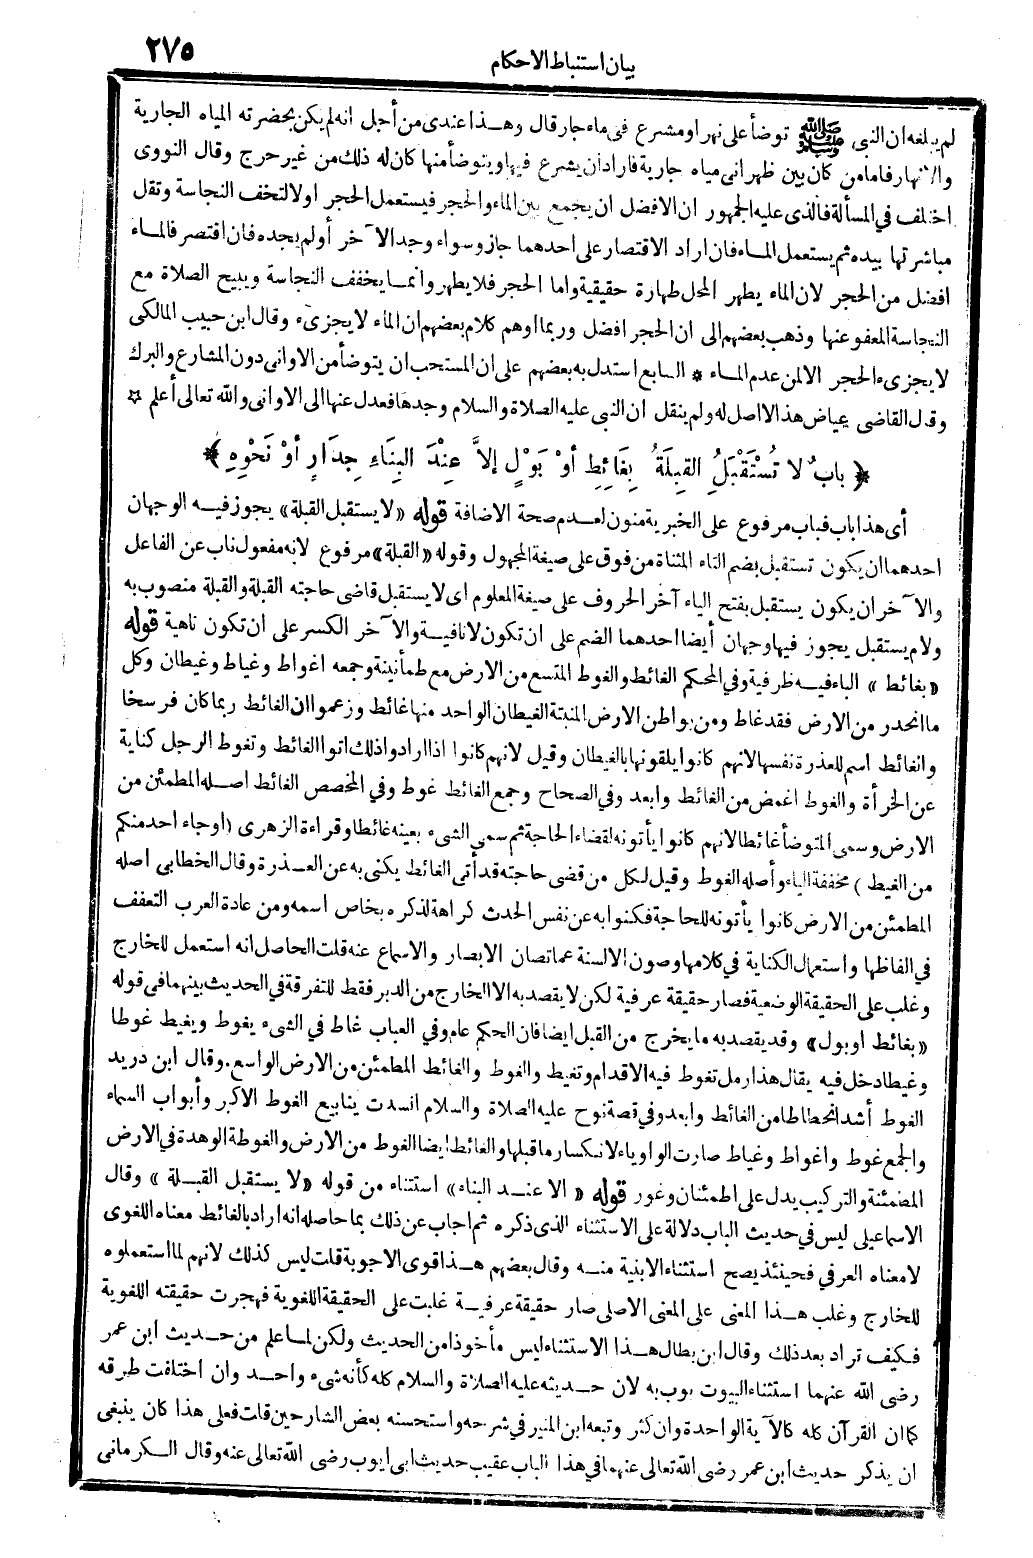 ٢٧٥
بيان استنباط الاحكام
لم يبلغه ان النبى ﷺ توضأ على نهر او مشرع فى ماء جار قال وهـذا عندى من أجل انه لم يكن بحضرته المياه الجارية
والانهار فاما من كان بين ظهرانى مياه جارية فاراد ان يشرع فيها ويتوضأ منها كان له ذلك من غير حرج وقال النووى
اختلف في المسألة فالذى عليه الجمهور ان الافضل ان يجمع بين الماء والحجر فيستعمل الحجر اولا لتخف النجاسة وتقل
مباشرتها بيده ثم يستعمل المـاء فان اراد الاقتصار على احدهما جاز وسواء وجد الآخر أو لم يجده فان اقتصر فالمـاء
افضل من الحجر لان الماء يطهر المحل طهارة حقيقية واما الحجر فلا يطهر وانمـا يخفف النجاسة ويبيح الصلاة مع
النجاسة المعفو عنها وذهب بعضهم الى ان الحجر افضل وربما اوهم كلام بعضهم ان الماء لا يجزىء وقال ابن حبيب المالكى
لا يجزىء الحجر الا لمن عدم المـاء * السابع استدل به بعضهم على ان المستحب ان يتوضأ من الاوانى دون المشارع والبرك
وقال القاضى عياض هذا لا اصل له ولم ينقل ان النبى عليه الصلاة والسلام وجدها فعدل عنها الى الاوانى والله تعالى أعلم ☆
﴿ بابٌ لا تُسْتَقْبَلُ القِبلَةُ بِغَائِطٍ أوْ بَوْلٍ إلاَّ عِنْدَ البِنَاءِ جِدَارٍ أوْ نَحْوِهِ ﴾
أى هذا باب فباب مرفوع على الخبرية منون لعـدم صحة الاضافة قوله «لا يستقبل القبلة» يجوز فيـه الوجهان
احدهما ان يكون تستقبل بضم التاء المثناة من فوق على صيغة المجهول وقوله «القبلة» مرفوع لانه مفعول ناب عن الفاعل
والآخر ان يكون يستقبل بفتح الياء آخر الحروف على صيغة المعلوم اى لا يستقبل قاضى حاجته القبلة والقبلة منصوب به
ولام يستقبل يجوز فيها وجهان أيضا احدهما الضم على ان تكون لا نافيـة والآخر الكسر على ان تكون ناهية قوله
«بغائط» الباء فيـه ظرفية وفي المحكم الغائط والغوط المتسع من الارض مع طمأنينة وجمعه اغواط وغياط وغيطان وكل
ما انحدر من الارض فقد غاط ومن بواطن الارض المنبتة الغيطان الواحد منها غائط وزعموا ان الغائط ربما كان فرسخا
والغائط اسم للعذرة نفسها لانهم كانوا يلقونها بالغيطان وقيل لانهم كانوا اذا ارادوا ذلك اتوا الغائط وتغوط الرجل كناية
عن الخرأة والغوط اغمض من الغائط وابعد وفي الصحاح وجمع الغائط غوط وفي المخصص الغائط اصـله المطمئن من
الارض وسمى المتوضأ غائطا لانهم كانوا يأتونه لقضاء الحاجة ثم سمى الشىء بعينه غائطا وقراءة الزهرى (او جاء احد منكم
من الغيط) مخففة الياء وأصله الغوط وقيل لكل من قضى حاجته قد أتى الغائط يكنى به عن العـذرة وقال الخطابى اصله
المطمئن من الارض كانوا يأتونه للحاجة فكنوا به عن نفس الحدث كراهة لذكره بخاص اسمه ومن عادة العرب التعفف
في الفاظها واستعمال الكناية في كلامها وصون الالسنة عما تصان الابصار والاسماع عنه قلت الحاصل انه استعمل للخارج
وغلب على الحقيقة الوضعية فصار حقيقة عرفية لكن لا يقصد به الا الخارج من الدبر فقط للتفرقة في الحديث بينهما فى قوله
«بغائط او بول» وقد يقصد به ما يخرج من القبل ايضا فان الحكم عام وفي العباب غاط في الشىء يغوط ويغيط غوطا
وغيطا دخل فيه يقال هذا رمل تغوط فيه الاقدام وتغيط والغوط والغائط المطمئن من الارض الواسع. وقال ابن دريد
الغوط أشد انحطاطا من الغائط وابعد وفي قصة نوح عليه الصلاة والسلام انسدت ينابيع الغوط الاكبر وأبواب السماء
والجمع غوط واغواط وغياط صارت الواو ياء لانكسار ما قبلها والغائط ايضا الغوط من الارض والغوطة الوهدة في الارض
المطمئنة والتركيب يدل على اطمئنان وغور قوله « الا عنـد البناء» استثناء من قوله «لا يستقبل القبـلة» وقال
الاسماعيلى ليس في حديث الباب دلالة على الاستثناء الذى ذكره ثم اجاب عن ذلك بما حاصله انه اراد بالغائط معناه اللغوى
لا معناه العرفي فحينئذ يصح استثناء الابنية منـه وقال بعضهم هـذا اقوى الاجوبة قلت ليس كذلك لانهم لما استعملوه
للخارج وغلب هـذا المعنى على المعنى الاصلى صار حقيقة عرفيـة غلبت على الحقيقة اللغوية فهجرت حقيقته اللغوية
فكيف تراد بعد ذلك وقال ابن بطال هـذا الاستثناء ليس مأخوذا من الحديث ولكن لمـا علم من حـديث ابن عمر
رضى الله عنهما استثناء البيوت بوب به لان حـديثه عليه الصلاة والسلام كله كأنه شىء واحـد وان اختلفت طرقه
كما ان القرآن كله كالآية الواحدة وان كثر وتبعه ابن المنير في شرحه واستحسنه بعض الشارحين قلت فعلى هذا كان ينبغى
ان يذكر حديث ابن عمر رضى الله تعالى عنهما في هذا الباب عقيب حديث ابى ايوب رضى الله تعالى عنه وقال الـكرمانى